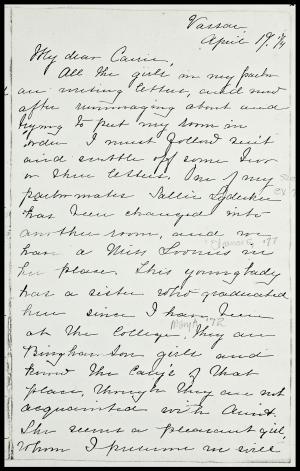 Vassar,
April 19. 74
My dear Carrie,
All the girls in my parlor
are writing letters, and now
after rummaging about and
trying to put my room in
order I must follow suit
and settle off some two
or three letters. One of my
parlormates Sallie
has been changed into
another room, and we
have a Miss Loomis in
her place. This young lady
has a sister who graduated
here since I have been
at the College. They are
Binghamton girls and
know the Cary's of that
place, though they are not
acquainted with Aunt.
She seems a pleasant girl,
whom I presume we will